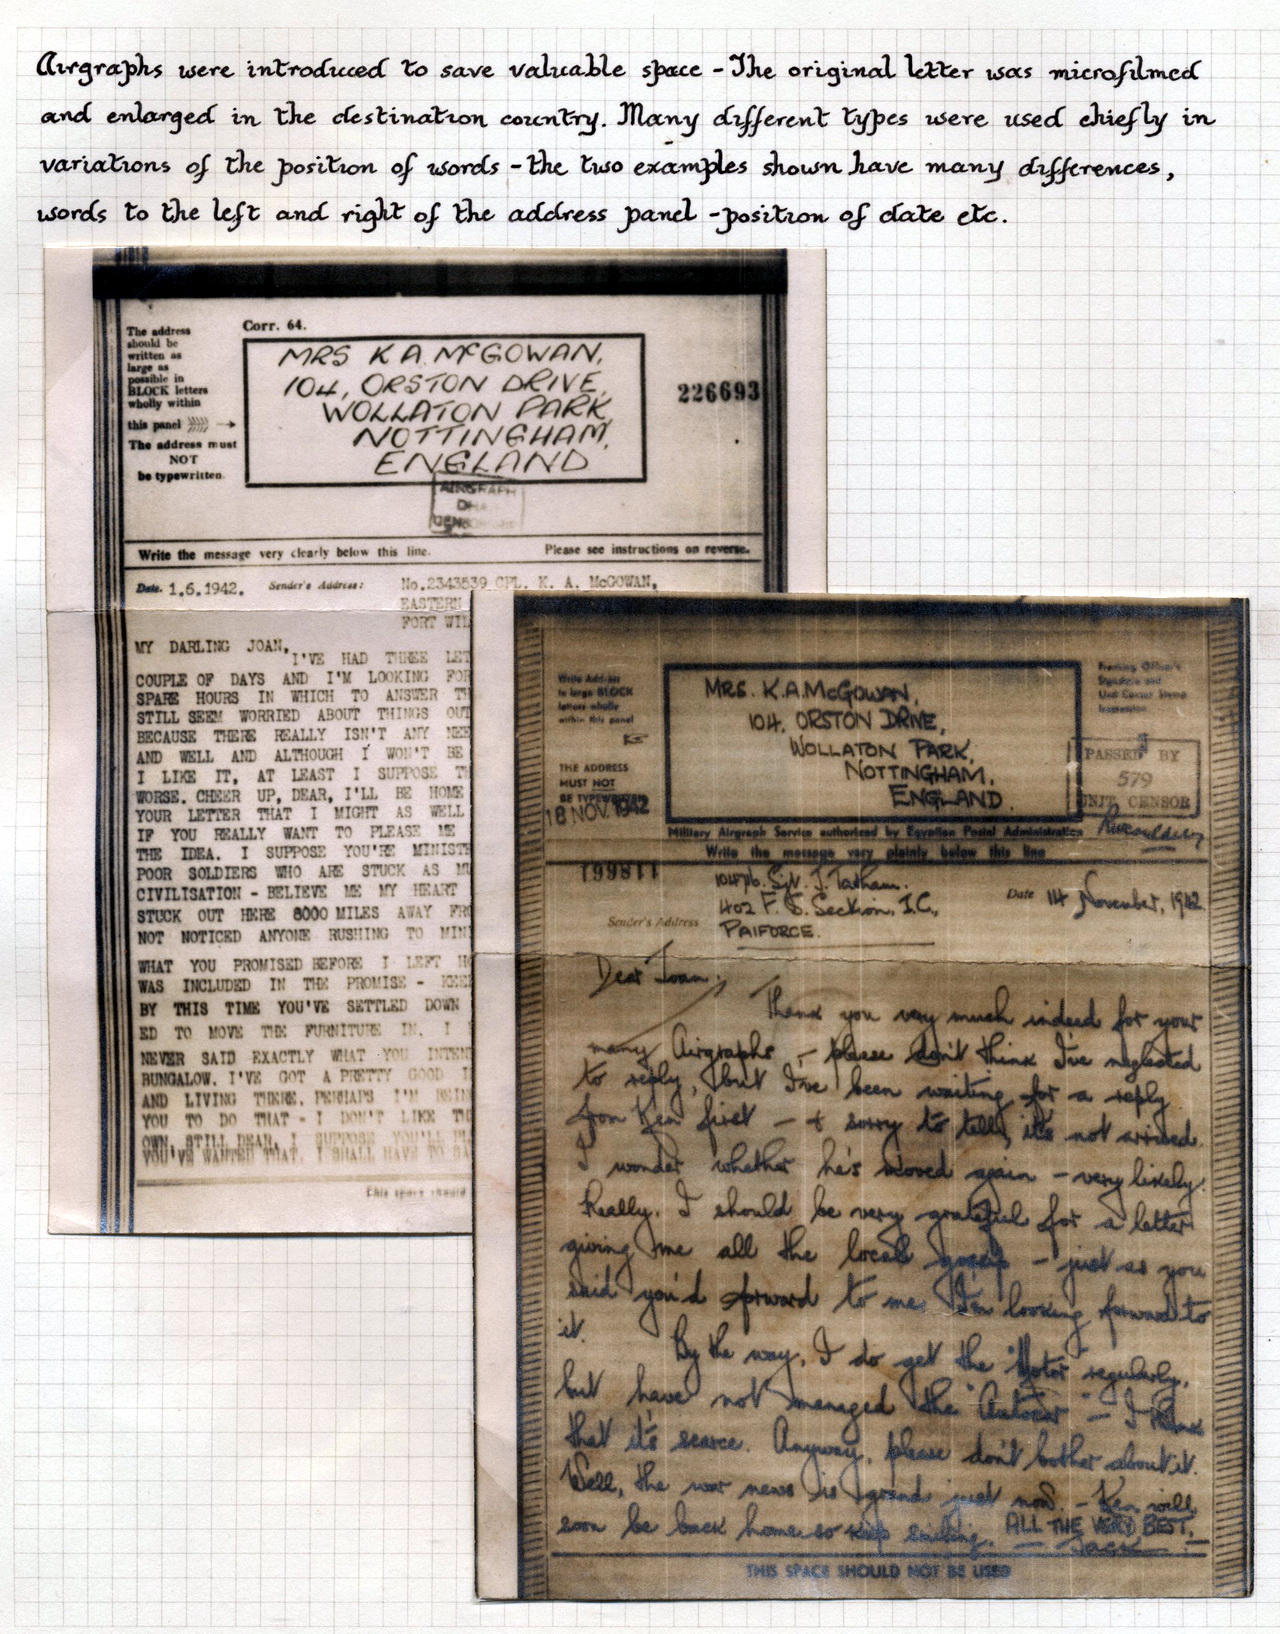 Airgraphs were introduced to save valuable space - The original letter was microfilmed
and enlarged in the destination country. Many different types were used chiefly in
variations of the position of words - the two examples shown have many differences,
words to the left and right of the address panel - position of date etc.
The address
should be
written as
large as
possible in
BLOCK letters
wholly within
this panel
The address must
NOT
be typewritten.
Corr. 64.
MRS K A McGOWAN,
104, ORSTON DRIVE,
WOLLATON PARK,
NOTTINGHAM,
ENGLAND
226693
AIRGRAPH
Write the message very clearly below this line. Please see instructions on reverse.
Date. 1.6.1942. Sender's Address: No.2343539 CPL. K. A. McGOWAN,
EASTERN
FORT WIL
MY DARLING JOAN,
I'VE HAD THREE LET
COUPLE OF DAYS AND I'M LOOKING FOR
SPARE HOURS IN WHICH TO ANSWER TH
STILL SEEM WORRIED ABOUT THINGS OUT
BECAUSE THERE REALLY ISN'T ANY NEE
AND WELL AND ALTHOUGH I WON'T BE
I LIKE IT, AT LEAST I SUPPOSE TH
WORSE. CHEER UP, DEAR, I'LL BE HOME
YOUR LETTER THAT I MIGHT AS WELL
IF YOU REALLY WANT TO PLEASE ME
THE IDEA. I SUPPOSE YOU'RE MINISTE
POOR SOLDIERS WHO ARE STUCK AS MU
CIVILISATION - BELIEVE ME MY HEART
STUCK OUT HERE 8000 MILES AWAY FRO
NOT NOTICED ANYONE RUSHING TO MIN
WHAT YOU PROMISED BEFORE I LEFT HO
WAS INCLUDED IN THE PROMISE - KEE
BY THIS TIME YOU'VE SETTLED DOWN
ED TO MOVE THE FURNITURE IN. I
NEVER SAID EXACTLY WHAT YOU INTEN
BUNGALOW. I'VE GOT A PRETTY GOOD I
AND LIVING THERE. PERHAPS I'M BEIN
YOU TO DO THAT - I DON'T LIKE TH
OWN. STILL DEAR, I SUPPOSE YOU'LL
YOU'VE WANTED THAT. I SHALL HAVE TO SA
This space should
Write Address
in large BLOCK
letters wholly
within this panel
THE ADDRESS
MUST NOT
BE TYPEWRITTEN
18 NOV 1942
MRS. K.A. McGOWAN,
104, ORSTON DRIVE,
WOLLATON PARK,
NOTTINGHAM,
ENGLAND.
Framing Officer's
Signature and
Unit Censor Stamp
Impression.
PASSED BY
579
UNIT CENSOR
Military Airgraph Service authorized by Egyptian Postal Administration
Write the message very plainly below this line
118661
Sgt. J. Tatham.
402 F. S. Section, I.C.,
Sender's Address PAIFORCE.
Date 14 November, 1942.
Dear Joan,
Thank you very much indeed for your
many Airgraphs, - please don't think I've neglected
to reply, but I've been waiting for a reply
from Ken first - & sorry to tell, it's not arrived.
I wonder whether he's moved again - very likely.
Really, I should be very grateful for a letter
giving me all the local gossip - just as you
said you'd forward to me. I'm looking forward to
it. By the way, I do get the "Motor" regularly,
but have not managed the "Autocar" - I think
that it's scarce. Anyway, please don't bother about it.
Well, the war news is grand just now. - Ken will
soon be back home so keep smiling. ALL THE VERY BEST.
- Jack -
THIS SPACE SHOULD NOT BE USED